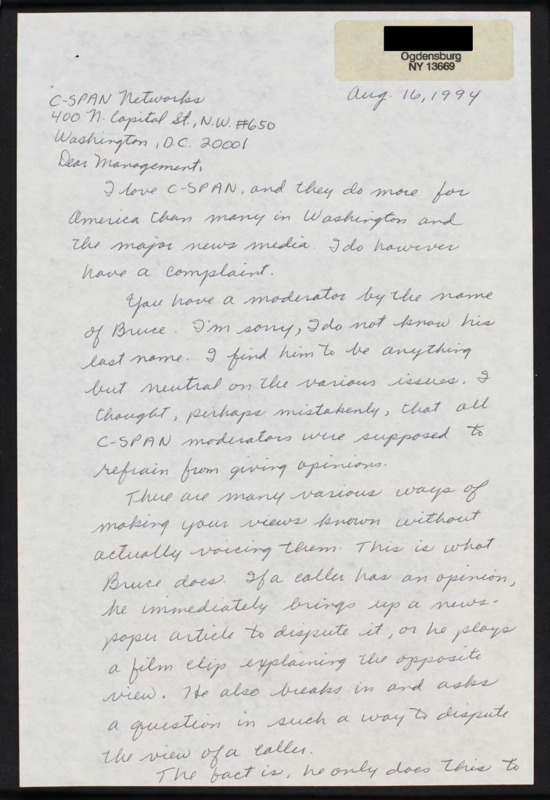 Ogdensburg
NY 13669
Aug. 16, 1994
C-SPAN Networks
400 N. Capital St., N.W. #650
Washington, D.C. 20001
Dear Management,
I love C-SPAN, and they do more for
America than many in Washington and
the major news media. I do however
have a complaint.
You have a moderator by the name
of Bruce. I'm sorry, I do not know his
last name. I find him to be anything
but neutral on the various issues. I
thought, perhaps mistakenly, that all
C-SPAN moderators were supposed to
refrain from giving opinions.
There are many various ways of
making your views known without
actually voicing them. This is what
Bruce does. If a caller has an opinion,
he immediately brings up a news-
paper article to dispute it, or he plays
a film clip explaining the opposite
view. He also breaks in and asks
a question in such a way to dispute
the view of a caller.
The fact is, he only does this to